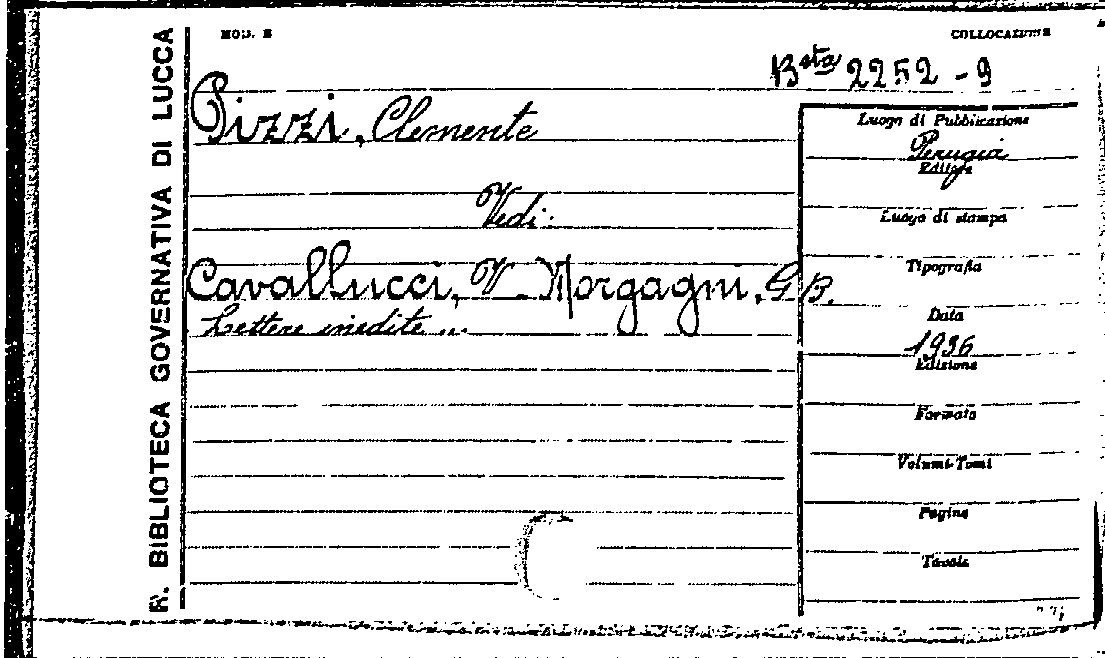 R. BIBLIOTECA GOVERNATIVA DI LUCCA
MOD. E
COLLOCAZIONE
Bsta 2252 - 9
Pizzi, Clemente
Vedi:
Cavallucci, V. Morgagni, G.B.
Lettere inedite ...
Luogo di Pubblicazione
Perugia
Editore
Luogo di stampa
Tipografia
Data
1936
Edizione
Formato
Volumi-Tomi
Pagine
Tavole